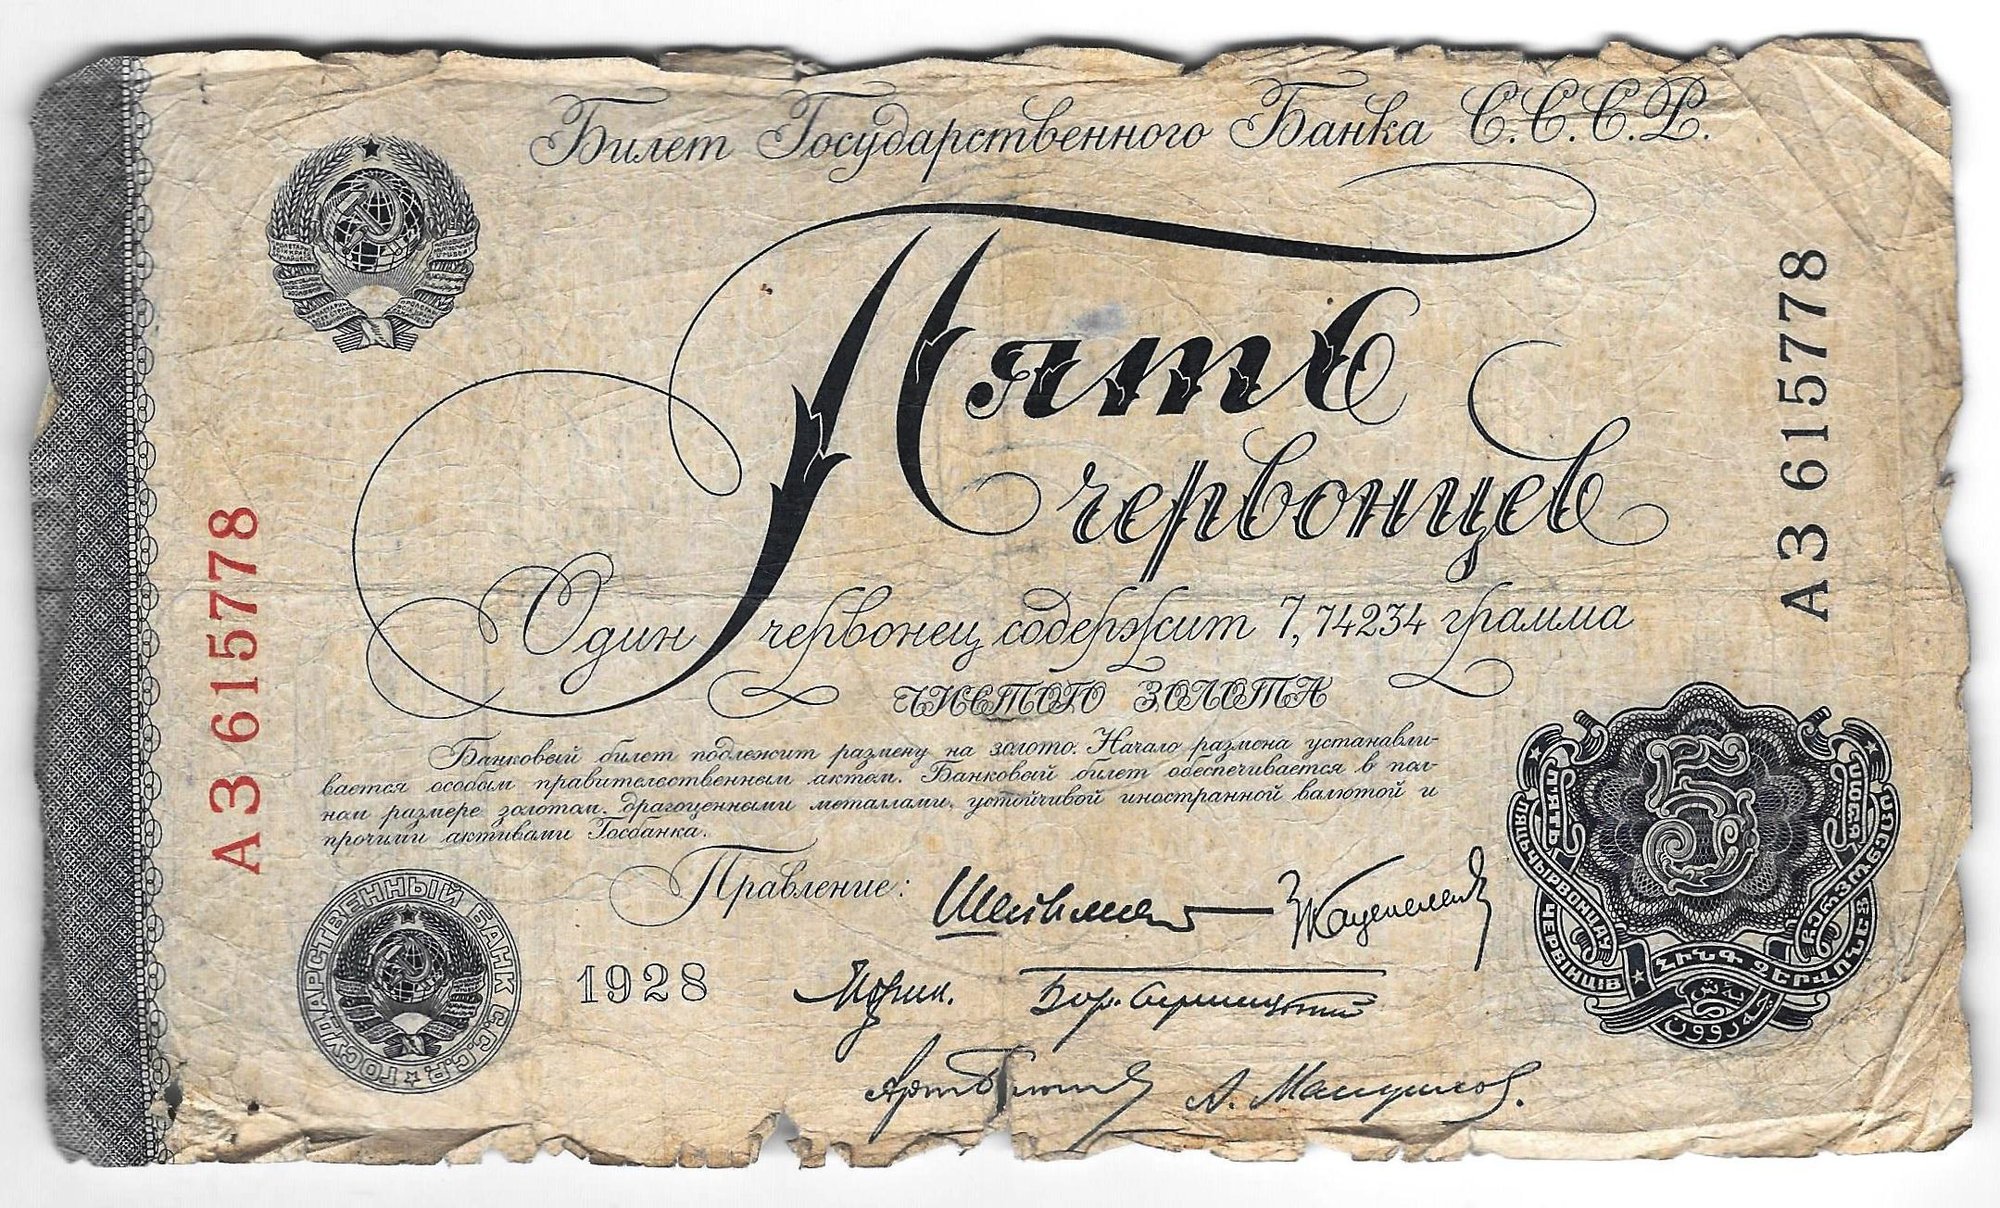 Билет Государственного Банка С.С.С.Р.
Пять
червонцев
Один червонец содержит 7,74234 грамма
ЧИСТОГО ЗОЛОТА
Банковый билет подлежит размену на золото. Начало размена устанавли-
вается особым правительственным актом. Банковый билет обеспечивается в пол-
ном размере золотом, драгоценными металлами, устойчивой иностранной валютой и
прочими активами Госбанка.
Правление:
1928
АЗ 615778
АЗ 615778
ГОСУДАРСТВЕННЫЙ БАНК С.С.С.Р.
5
ПЯТЬ
ПЯЦЬ ЧЫРВОНЦАЎ
ЧЕРВІНЦІВ
ՀԻՆԳ ՉԵՐՎՈՆԵՑ